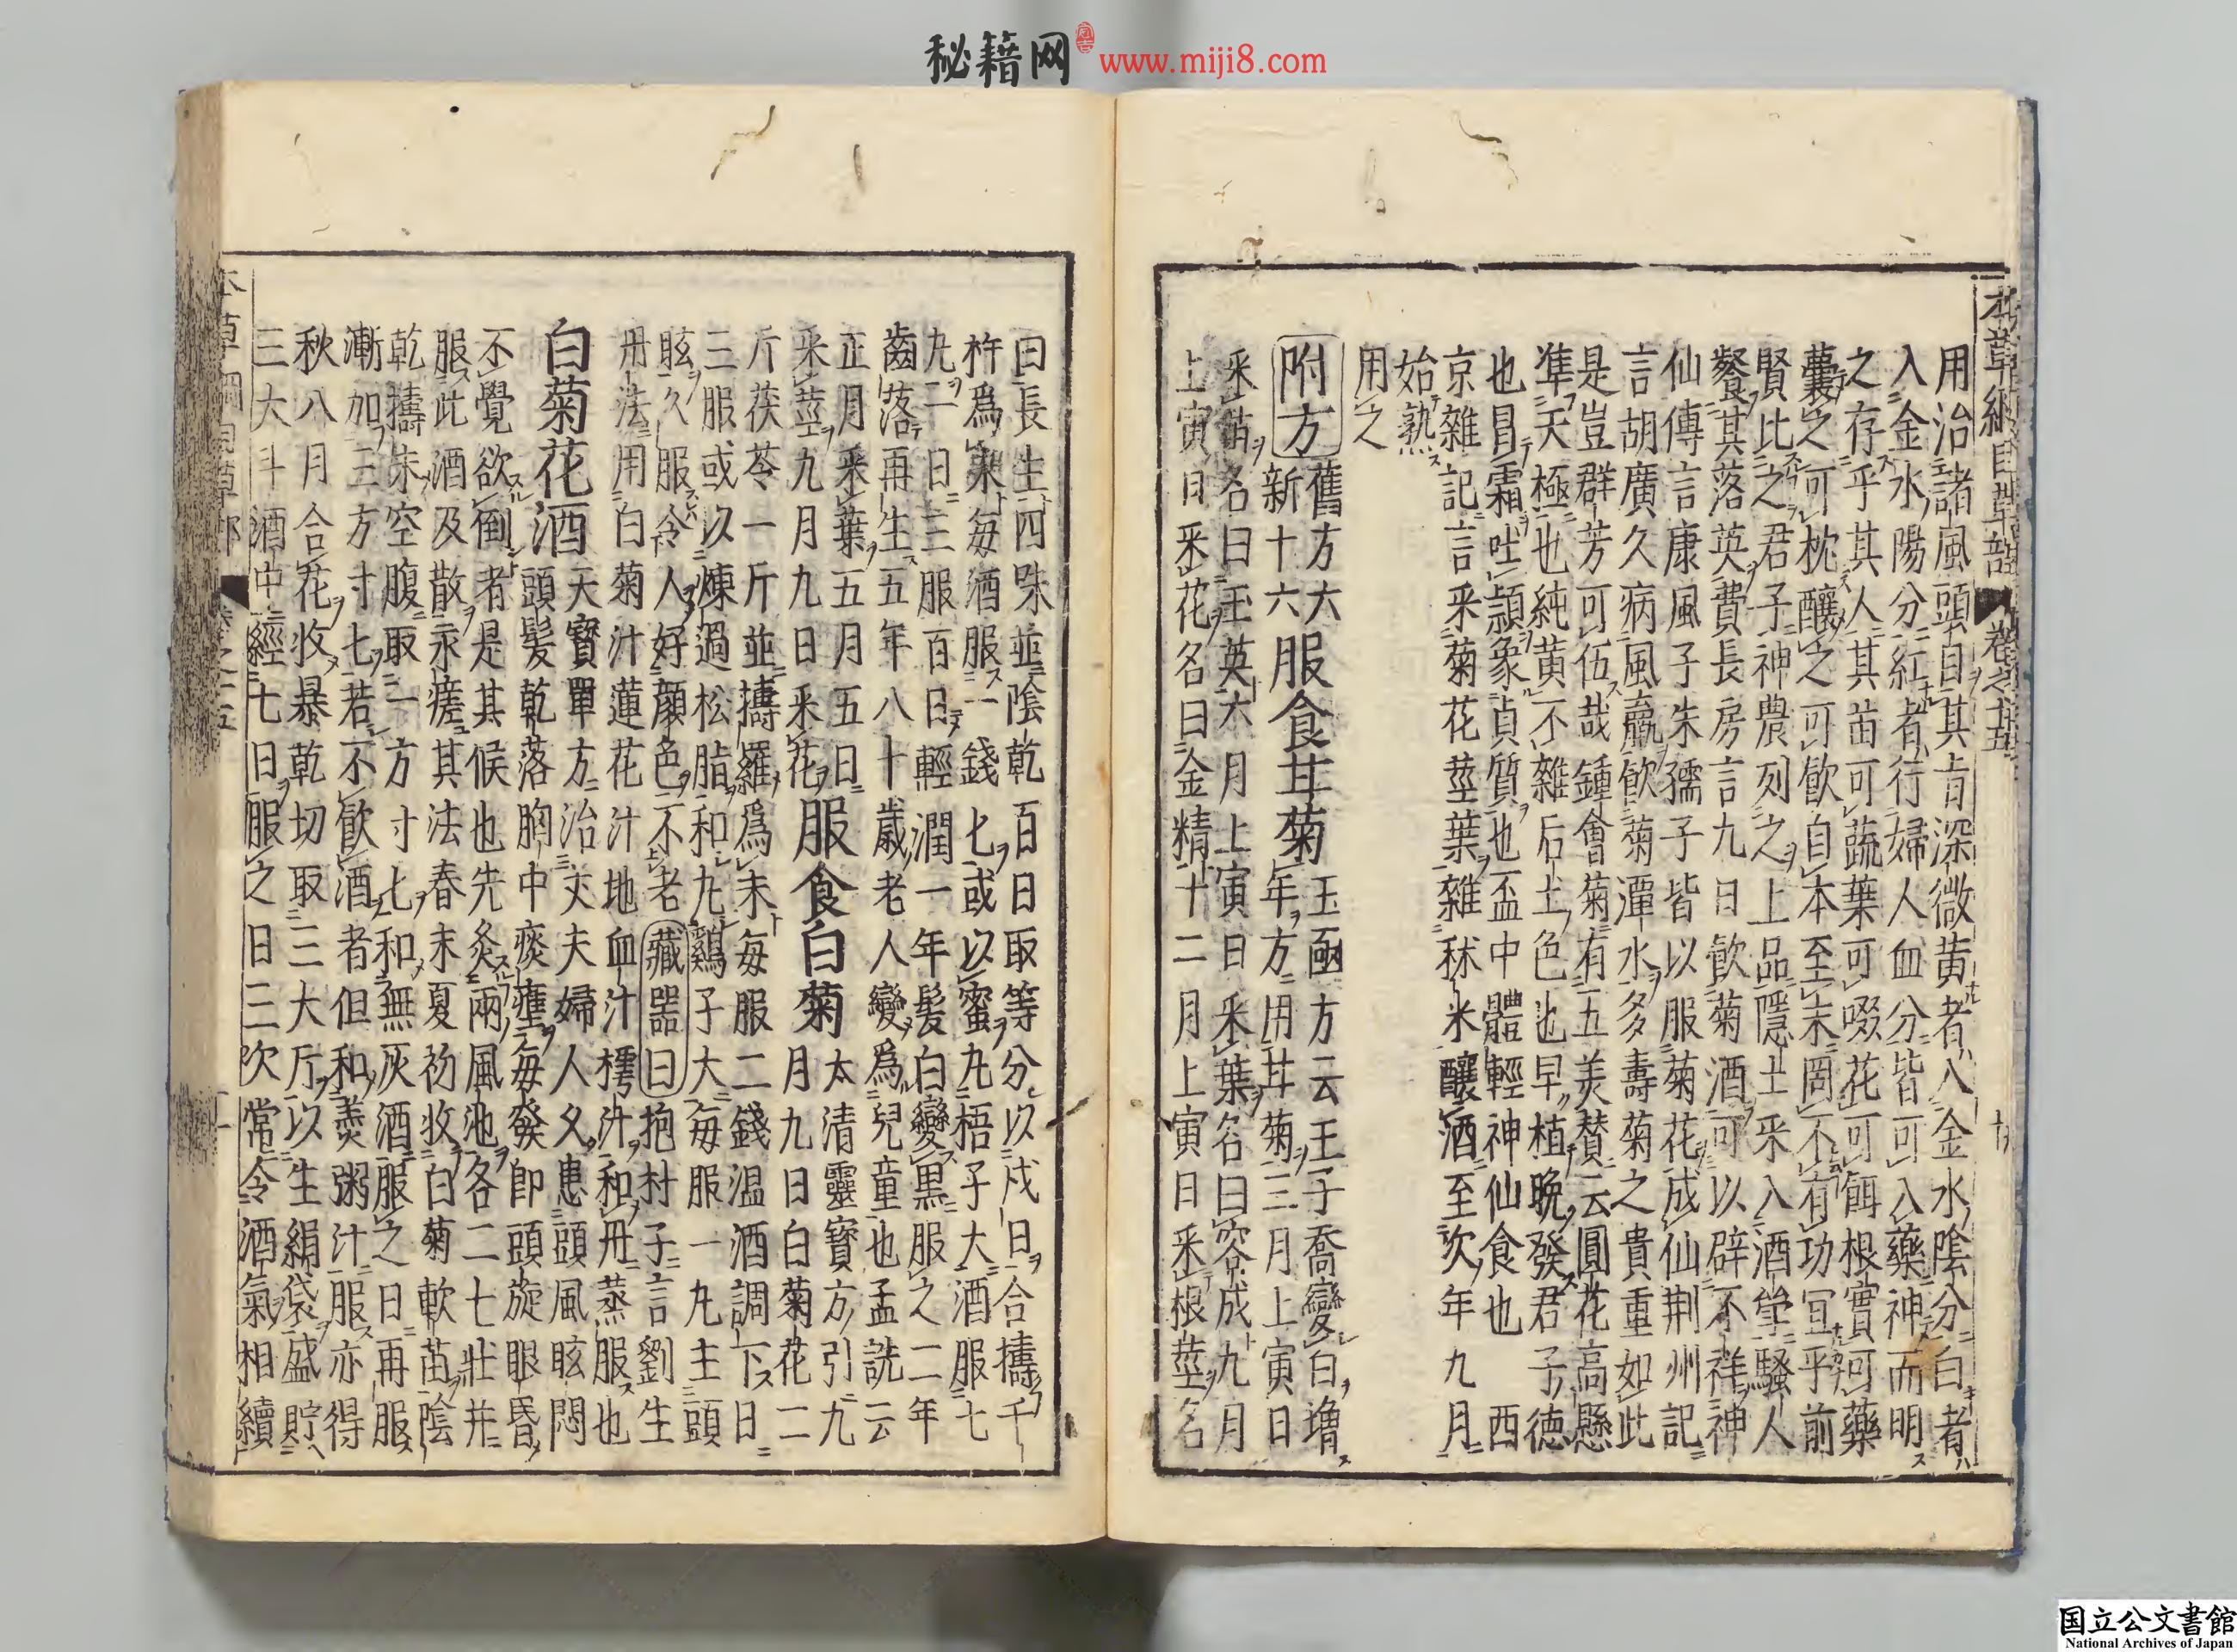 秘籍网 www.miji8.com
本草綱目草部 卷之十五
用治諸風頭目其旨深微黄者入金水陰分白者
入金水陽分紅者行婦人血分皆可入藥神而明
之存乎其人其苗可蔬葉可啜花可餌根實可藥
囊之可枕釀之可飲自本至末罔不有功宜乎前
賢比之君子神農列之上品隱士采入酒斝騷人
餐其落英費長房言九日飲菊酒可以辟不祥神
仙傳言康風子朱孺子皆以服菊花成仙荆州記
言胡廣久病風羸飲菊潭水多壽菊之貴重如此
是豈群芳可伍哉鍾會菊有五美贊云圓花高懸
凖天極也純黄不雜后土色也早植晩發君子徳
也冒霜吐頴象貞質也盃中體輕神仙食也 西
京雜記言采菊花莖葉雜秫米釀酒至次年九月
始熟
用之
附方 舊方六新十六 服食甘菊 玉函方云王子喬變白增年方用甘菊三月上寅日
采苗名曰玉英六月上寅日采葉名曰容成九月
上寅日采花名曰金精十二月上寅日采根莖名
曰長生四味並陰乾百日取等分以戌日合擣千
杵爲末毎酒服一錢七或以蜜丸梧子大酒服七
九二日三服百日輕潤一年髮白變黒服之二年
齒落再生五年八十歲老人變爲兒童也孟詵云
正月采葉五月五日采莖九月九日采花 服食白菊 太清靈寶方引九月九日白菊花二
斤茯苓一斤並擣羅爲末毎服二錢温酒調下日
三服或以煉過松脂和丸鷄子大毎服一丸主頭
眩久服令人好顔色不老 藏噐曰 抱朴子言劉生
丹法用白菊汁蓮花汁地血汁樗汁和丹蒸服也
白菊花酒 天寶單方治丈夫婦人久患頭風眩悶頭髮乾落胸中痰壅毎發即頭旋眼昏
不覺欲倒者是其候也先灸兩風池各二七壯并
服此酒及散永瘥其法春末夏初收白菊軟苗陰
乾擣末空腹取一方寸七和無灰酒服之日再服
漸加三方寸七若不飲酒者但和羹粥汁服亦得
秋八月合花收暴乾切取三大斤以生絹袋盛貯
三大斗酒中經七日服之日三次常令酒氣相續
国立公文書館
National Archives of Japan